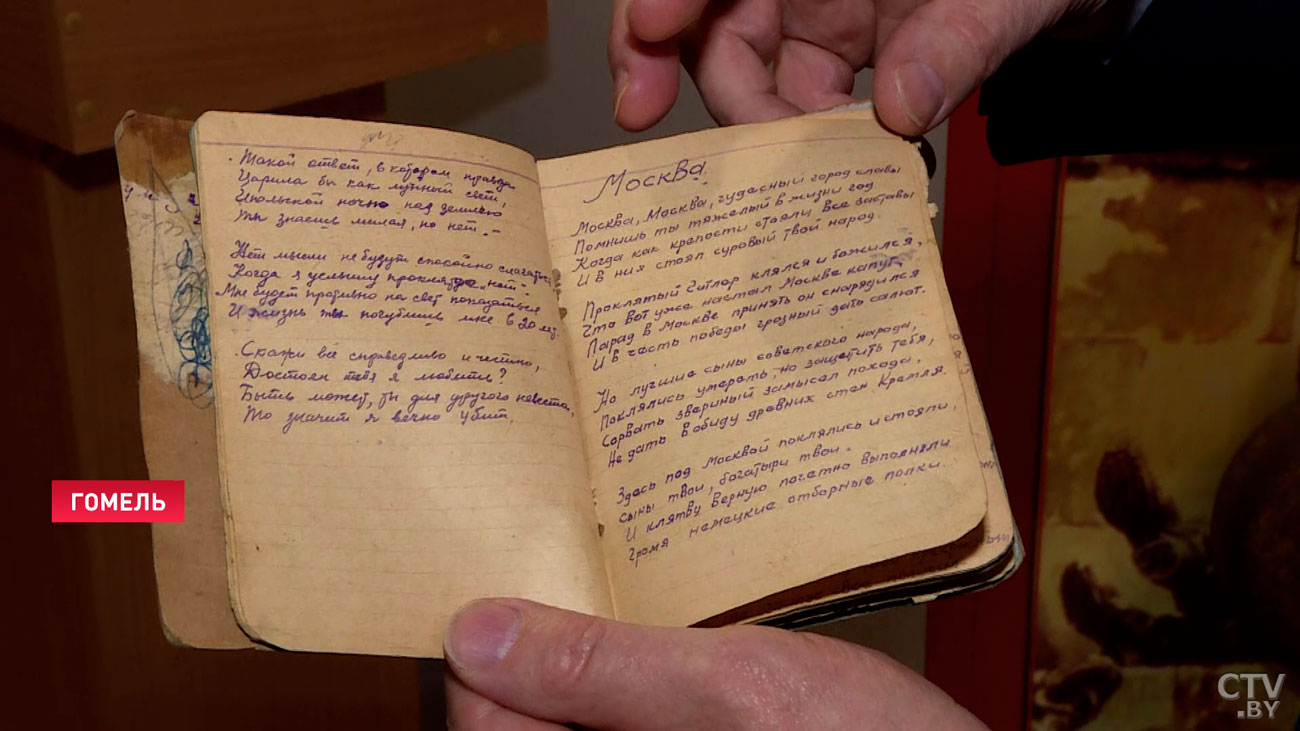 Такой ответ, в котором правда
Царила бы как лунный свет,
Июльской ночью над землею
Ты знаешь милая, но нет.-
Нет мысли не будут спокойно слагаться
Когда я услышу проклятое „нет".
Мне будет противно на свет показаться
И жизнь ты погубишь мне в 20 лет.
Скажи всё справедливо и честно,
Достоин тебя я любить?
Быть может, ты для другого невеста,
То значит я вечно убит.
Москва.
Москва, Москва, чудесный город славы
Помнишь ты тяжелый в жизни год
Когда как крепости стояли, все заставы
И в них стоял суровый твой народ.
Проклятый Гитлер клялся и божился,
Что вот уже настал Москве капут,
Парад в Москве принять он снарядился
И в честь победы грозный дать салют.
Но лучшие сыны советского народа,
Поклялись умереть, но защитить тебя,
Сорвать звериный замысел похода,
Не дать в обиду древних стен Кремля.
Здесь под Москвой поклялись и стояли,
сыны твои, богатыри твои.
И клятву верную почетно выполняли
Громя немецкие отборные полки.
ГОМЕЛЬ
CTV
.BY